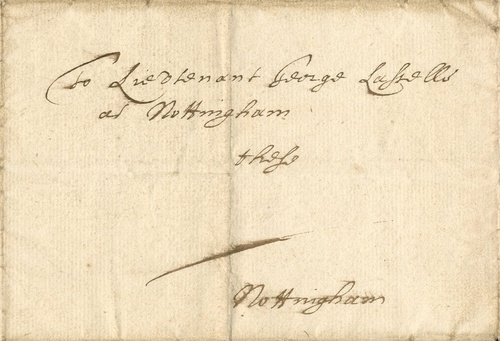 To Liedtenant George Lassells
at Nottingham
these
Nottingham